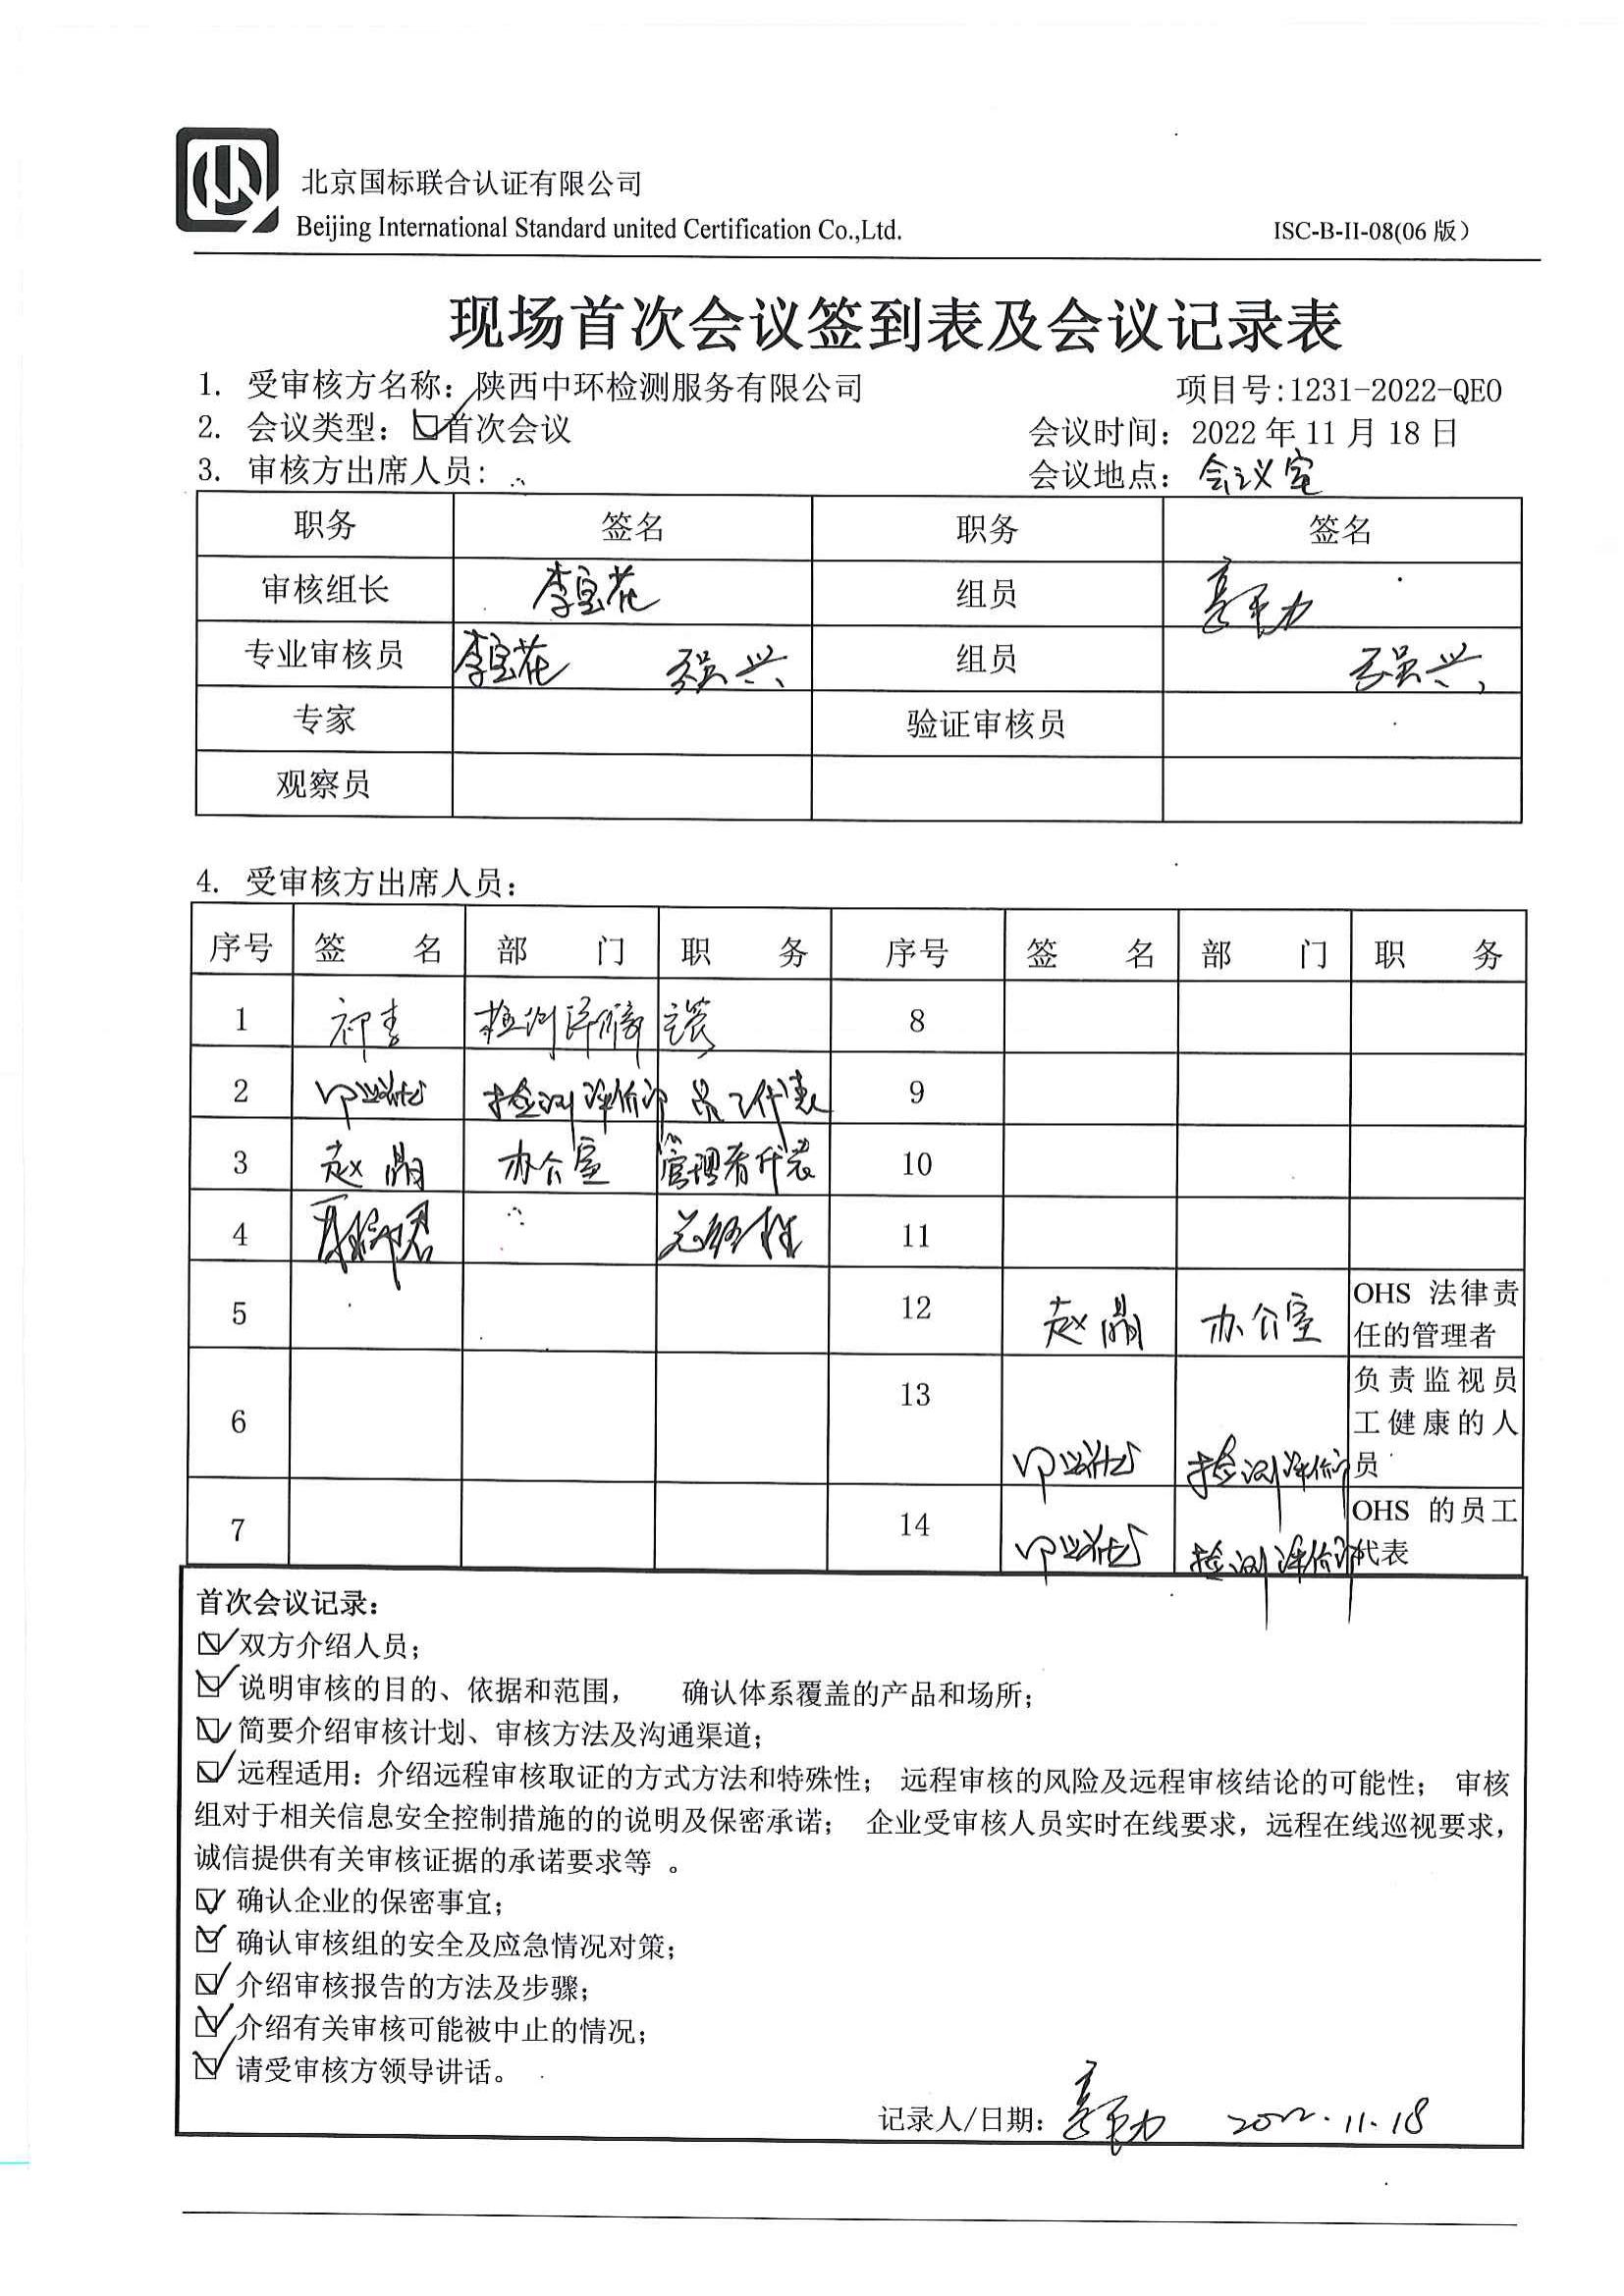 北京国标联合认证有限公司
Beijing International Standard united Certification Co.,Ltd.
ISC-B-II-08(06 版)
现场首次会议签到表及会议记录表
1. 受审核方名称：陕西中环检测服务有限公司 项目号:1231-2022-QEO
2. 会议类型：☑首次会议 会议时间：2022 年 11 月 18 日
3. 审核方出席人员： 会议地点：会议室
职务 签名 职务 签名
审核组长 李宝花 组员
专业审核员 李宝花 组员
专家 验证审核员
观察员
4. 受审核方出席人员：
序号 签 名 部 门 职 务 序号 签 名 部 门 职 务
1 祁麦 检测评价部 8
2 检测评价部 员工代表 9
3 赵晶 办公室 管理者代表 10
4 总经理 11
5 12 赵晶 办公室 OHS 法律责
任的管理者
6 13 检测评价部 负责监视员
工健康的人
员
7 14 检测评价部 OHS 的员工
代表
首次会议记录：
☑双方介绍人员；
☑说明审核的目的、依据和范围， 确认体系覆盖的产品和场所；
☑简要介绍审核计划、审核方法及沟通渠道；
☑远程适用：介绍远程审核取证的方式方法和特殊性； 远程审核的风险及远程审核结论的可能性； 审核
组对于相关信息安全控制措施的的说明及保密承诺； 企业受审核人员实时在线要求，远程在线巡视要求，
诚信提供有关审核证据的承诺要求等 。
☑ 确认企业的保密事宜；
☑ 确认审核组的安全及应急情况对策；
☑ 介绍审核报告的方法及步骤；
☑介绍有关审核可能被中止的情况；
☑ 请受审核方领导讲话。
记录人/日期： 2022.11.18